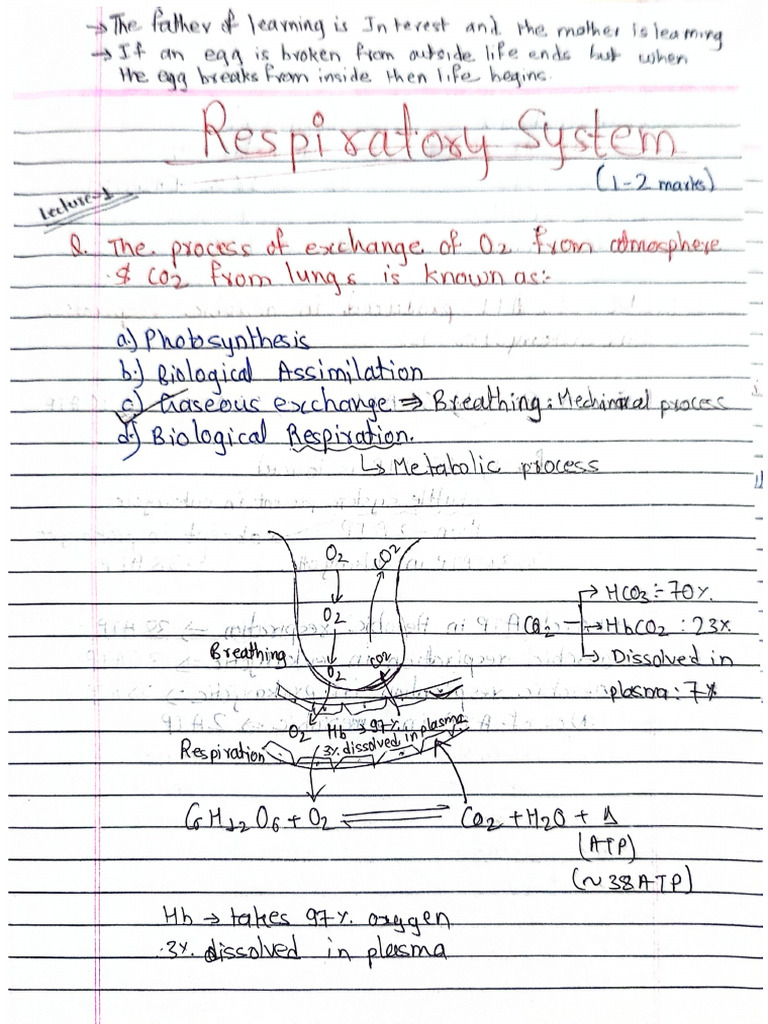 → The father of learning is Interest and the mother is learning
→ If an egg is broken from outside life ends but when
the egg breaks from inside then life begins.
Respiratory System
(1-2 marks)
Lecture-1
Q. The process of exchange of O2 from atmosphere
& CO2 from lungs is known as:-
a.) Photosynthesis
b.) Biological Assimilation
c.) Gaseous exchange ⇒ Breathing: Mechinical process
d.) Biological Respiration.
↳ Metabolic process
O2 CO2
O2
Breathing
O2 CO2
CO2 → HCO3:- 70%.
→ HbCO2 : 23%
↳ Dissolved in
plasma : 7%
O2 Hb → 97%
3% dissolved in plasma
Respiration
C6H12O6 + O2 ⇌ CO2 + H2O + Δ
(ATP)
(~38ATP)
Hb → takes 97%. oxygen
3%. dissolved in plasma